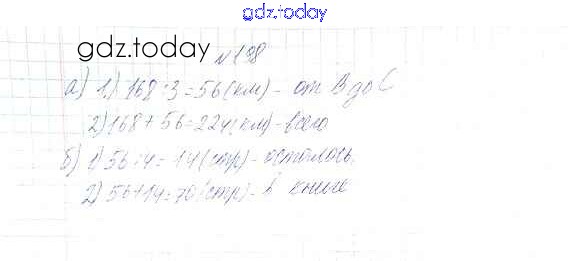 gdz.today
gdz.today
№198
а) 1) 168:3=56(км)- от В до С
2) 168+56=224(км)-всего
б) 1) 56:4=14(стр)-осталось.
2) 56+14=70(стр)-в книге